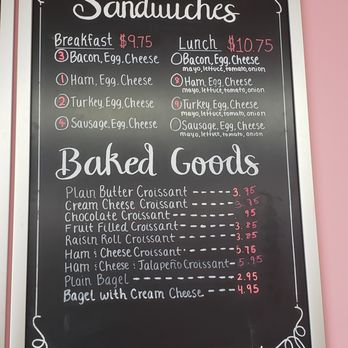 Sandwiches
Breakfast $9.75
③ Bacon, Egg, Cheese
① Ham, Egg, Cheese
② Turkey, Egg, Cheese
④ Sausage, Egg, Cheese
Lunch $10.75
Bacon, Egg, Cheese
mayo, lettuce, tomato, onion
Ham, Egg, Cheese
mayo, lettuce, tomato, onion
Turkey, Egg, Cheese
mayo, lettuce, tomato, onion
Sausage, Egg, Cheese
mayo, lettuce, tomato, onion
Baked Goods
Plain Butter Croissant ------ 3.75
Cream Cheese Croissant ---- 3.75
Chocolate Croissant ---- 95
Fruit Filled Croissant ---- 3.85
Raisin Roll Croissant ---- 3.85
Ham & Cheese Croissant ---- 5.76
Ham & Cheese & Jalapeño Croissant -- 5.95
Plain Bagel ------ 2.95
Bagel with Cream Cheese -- 4.95